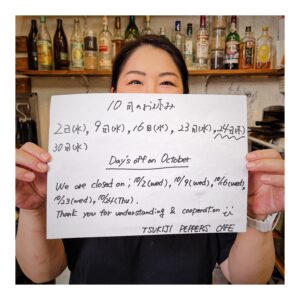 10月のお休み
2日(水), 9日(水), 16日(水), 23日(水), 24日(木)
30日(水)
Day's off on October
We are closed on ; 10/2(wed), 10/9(wed), 10/16(wed),
10/23(wed), 10/24(Thu).
Thank you for understanding & cooperation
TSUKIJI PEPPER'S CAFE